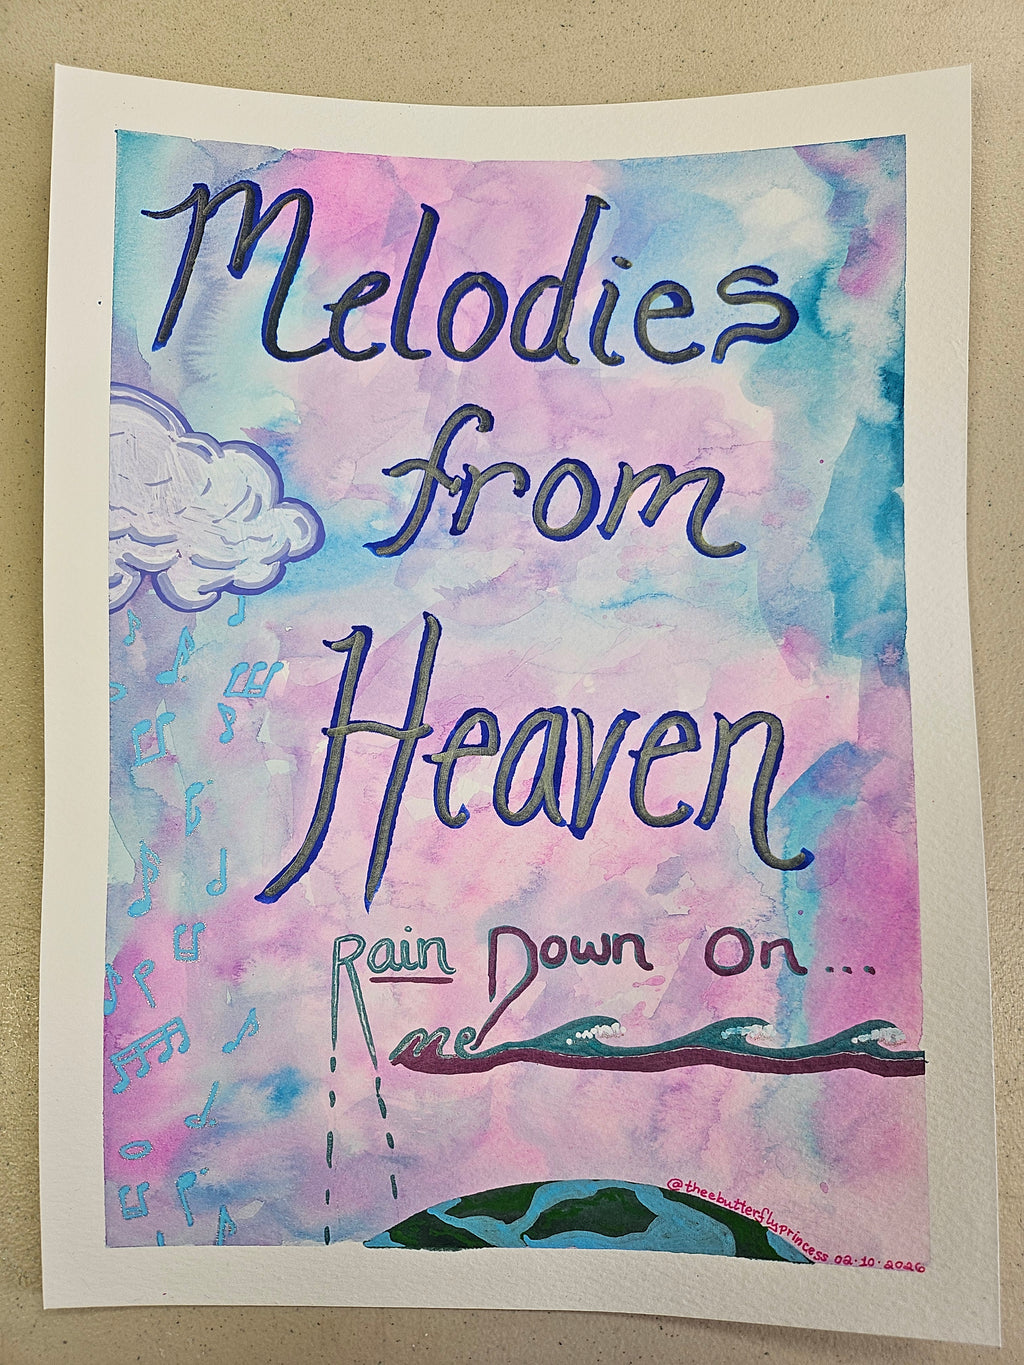 Melodies
from
Heaven
Rain Down On...
me
@theebutterflyprincess 02.10.2026